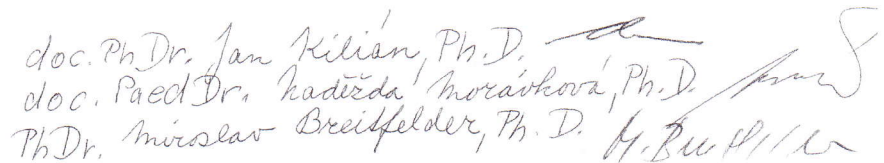 doc. PhDr. Jan Kilián, Ph.D.
doc. PaedDr. Naděžda Morávková, Ph.D.
PhDr. Miroslav Breitfelder, Ph.D.